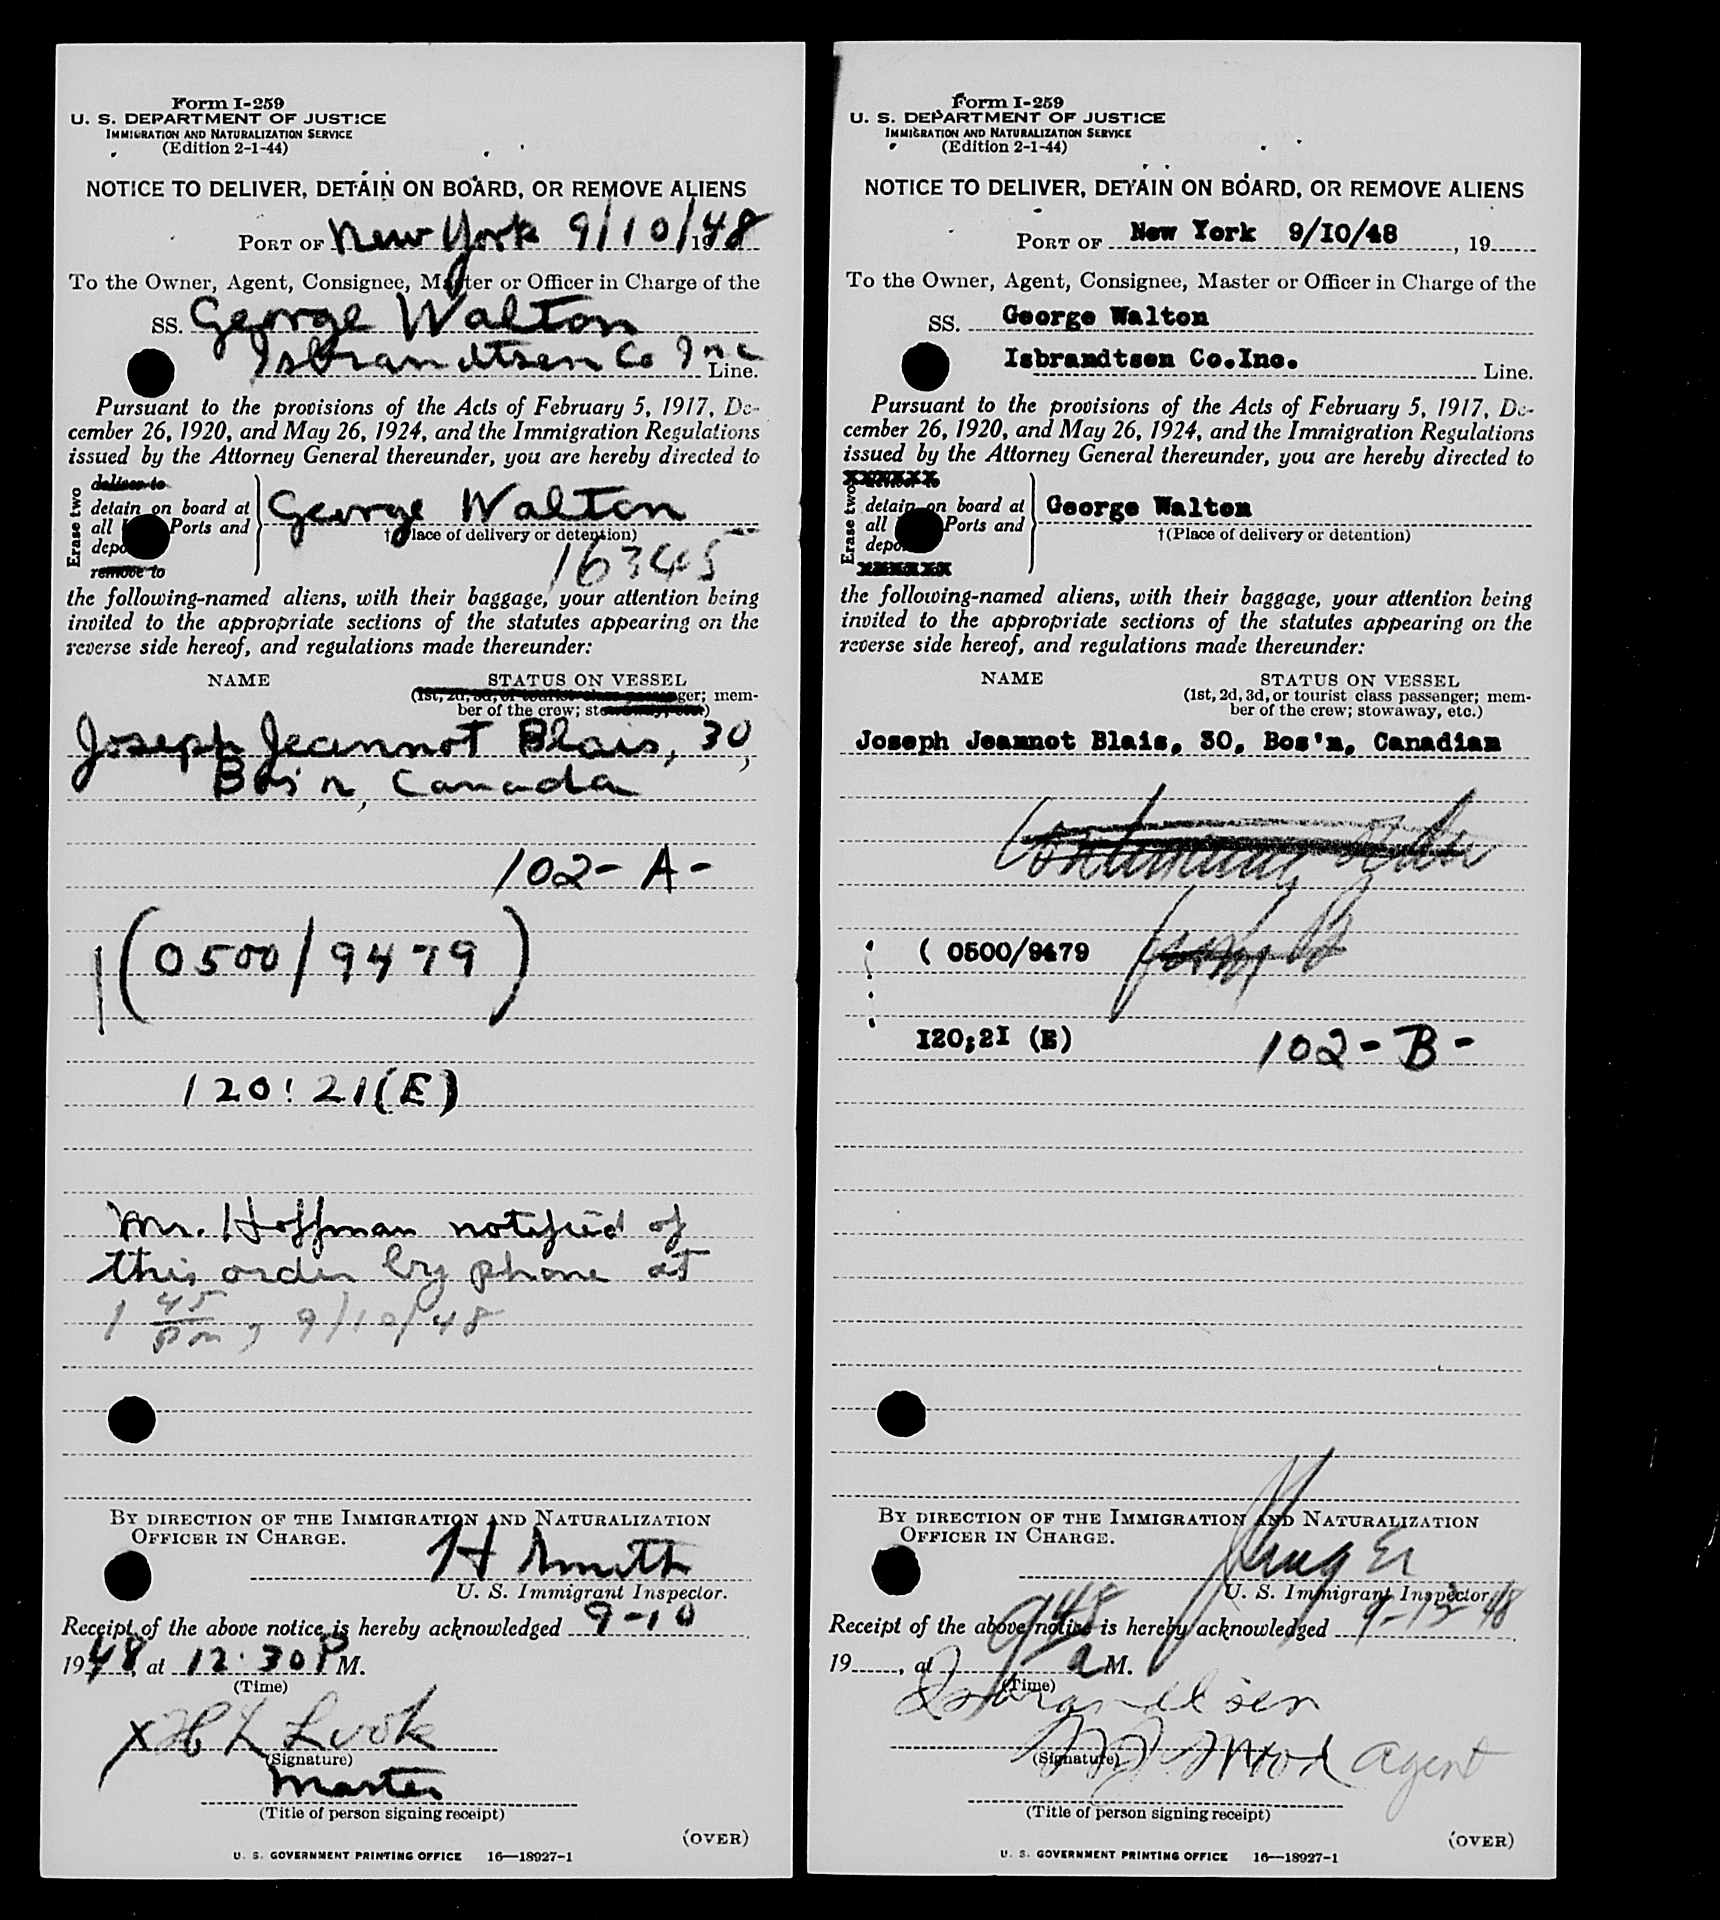 Form I-259
U. S. DEPARTMENT OF JUSTICE
IMMIGRATION AND NATURALIZATION SERVICE
(Edition 2-1-44)
NOTICE TO DELIVER, DETAIN ON BOARD, OR REMOVE ALIENS
PORT OF New York 9/10/1948
To the Owner, Agent, Consignee, Master or Officer in Charge of the
SS. George Walton
Isbrandtsen Co Inc Line.
Pursuant to the provisions of the Acts of February 5, 1917, De-
cember 26, 1920, and May 26, 1924, and the Immigration Regulations
issued by the Attorney General thereunder, you are hereby directed to
Erase two
deliver to
detain on board at
all Ports and
depo
remove to
George Walton
†(Place of delivery or detention)
163405
the following-named aliens, with their baggage, your attention being
invited to the appropriate sections of the statutes appearing on the
reverse side hereof, and regulations made thereunder:
NAME STATUS ON VESSEL
(1st, 2d, 3d, or tourist class passenger; mem-
ber of the crew; stowaway, etc.)
Joseph Jeannot Blais, 30,
Bos'n, Canada
102-A-
(0500/9479)
120:21(E)
Mr. Hoffman notified of
this order by phone at
1 45 pm, 9/10/48
BY DIRECTION OF THE IMMIGRATION AND NATURALIZATION
OFFICER IN CHARGE.
H Smith
U. S. Immigrant Inspector.
Receipt of the above notice is hereby acknowledged 9-10
1948, at 12:30 P M.
(Time)
x H L Look
(Signature)
Master
(Title of person signing receipt)
(OVER)
U. S. GOVERNMENT PRINTING OFFICE 16—18927-1
Form I-259
U. S. DEPARTMENT OF JUSTICE
IMMIGRATION AND NATURALIZATION SERVICE
(Edition 2-1-44)
NOTICE TO DELIVER, DETAIN ON BOARD, OR REMOVE ALIENS
PORT OF New York 9/I0/48, 19
To the Owner, Agent, Consignee, Master or Officer in Charge of the
SS. George Walton
Isbrandtsen Co.Inc. Line.
Pursuant to the provisions of the Acts of February 5, 1917, De-
cember 26, 1920, and May 26, 1924, and the Immigration Regulations
issued by the Attorney General thereunder, you are hereby directed to
Erase two
detain on board at
all Ports and
depo
George Walton
†(Place of delivery or detention)
the following-named aliens, with their baggage, your attention being
invited to the appropriate sections of the statutes appearing on the
reverse side hereof, and regulations made thereunder:
NAME STATUS ON VESSEL
(1st, 2d, 3d, or tourist class passenger; mem-
ber of the crew; stowaway, etc.)
Joseph Jeannot Blais, 30, Bos'n, Canadian
( 0500/9479
I20;2I (E)
102-B-
BY DIRECTION OF THE IMMIGRATION AND NATURALIZATION
OFFICER IN CHARGE.
U. S. Immigrant Inspector.
Receipt of the above notice is hereby acknowledged 9-13-48
19, at 948 a M.
(Time)
Isbrandtsen
(Signature)
Agent
(Title of person signing receipt)
(OVER)
U. S. GOVERNMENT PRINTING OFFICE 16—18927-1